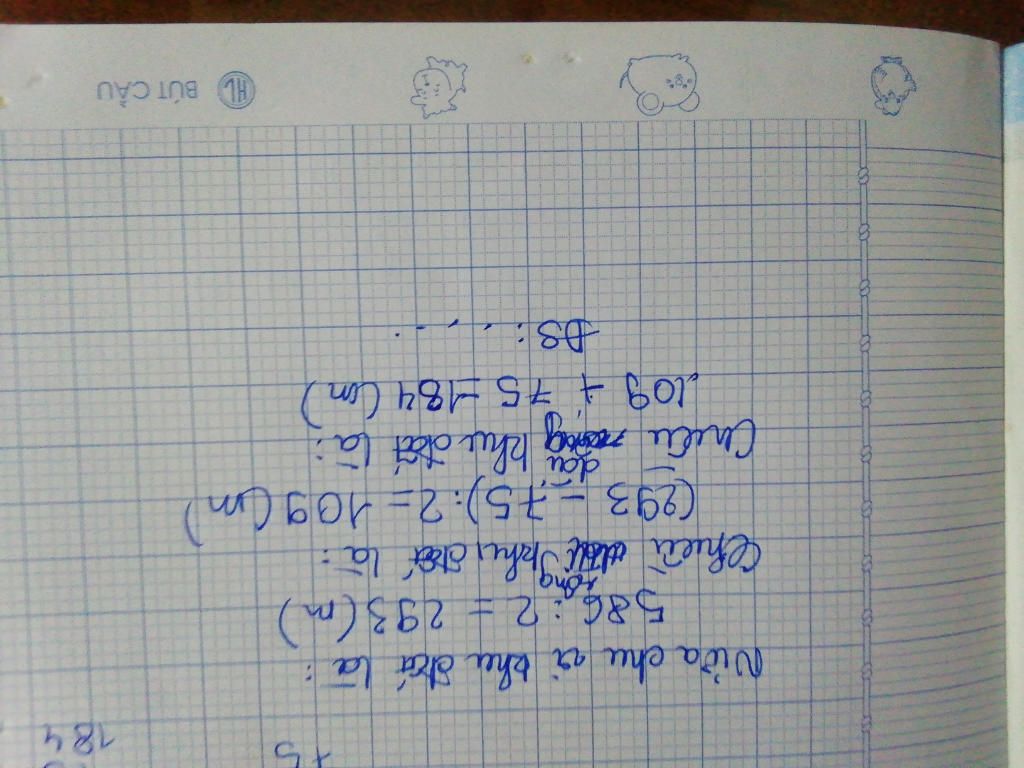 +5
184
Nửa chu vi khu đất là:
586 : 2 = 293 (m)
Chiều rộng khu đất là:
(293 - 75) : 2 = 109 (m)
Chiều dài khu đất là:
109 + 75 = 184 (m)
ĐS : . . . .
HL BÚT CẦU